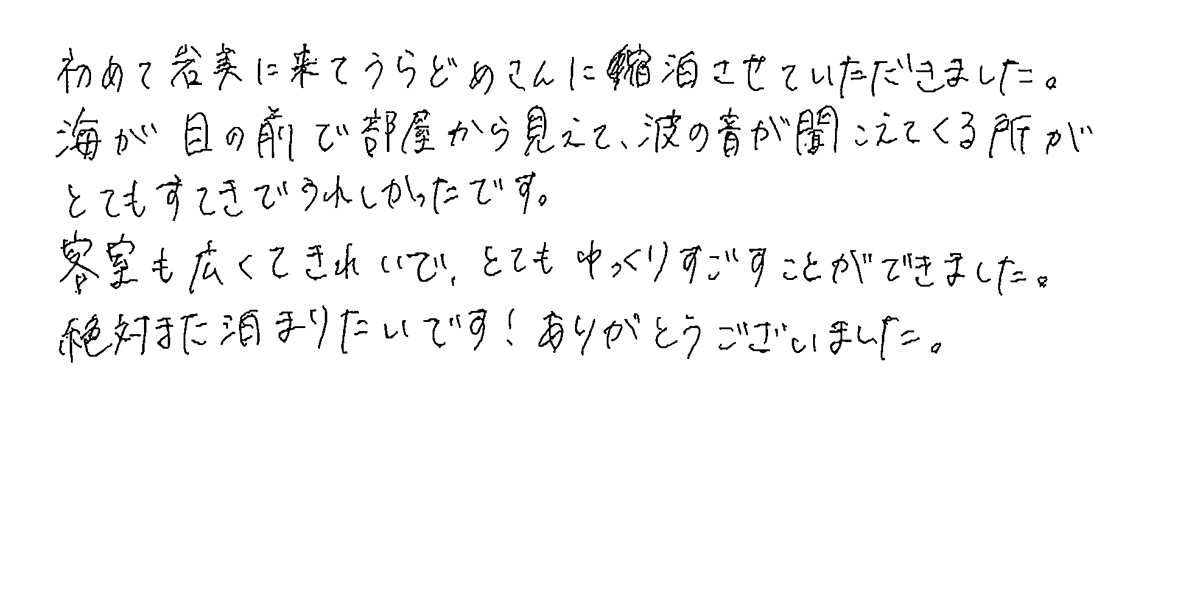 初めて岩美に来てうらどめさんに宿泊させていただきました。
海が目の前で部屋から見えて、波の音が聞こえてくる所が
とてもすてきでうれしかったです。
客室も広くてきれいで、とてもゆっくりすごすことができました。
絶対また泊まりたいです！ありがとうございました。